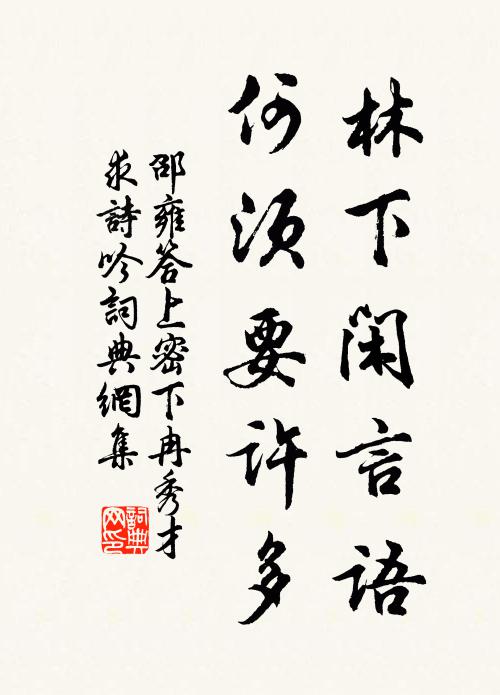 林下閑言語
何須要許多
邵雍答上密下冉秀才
求詩吟詞典網集
詞典网印